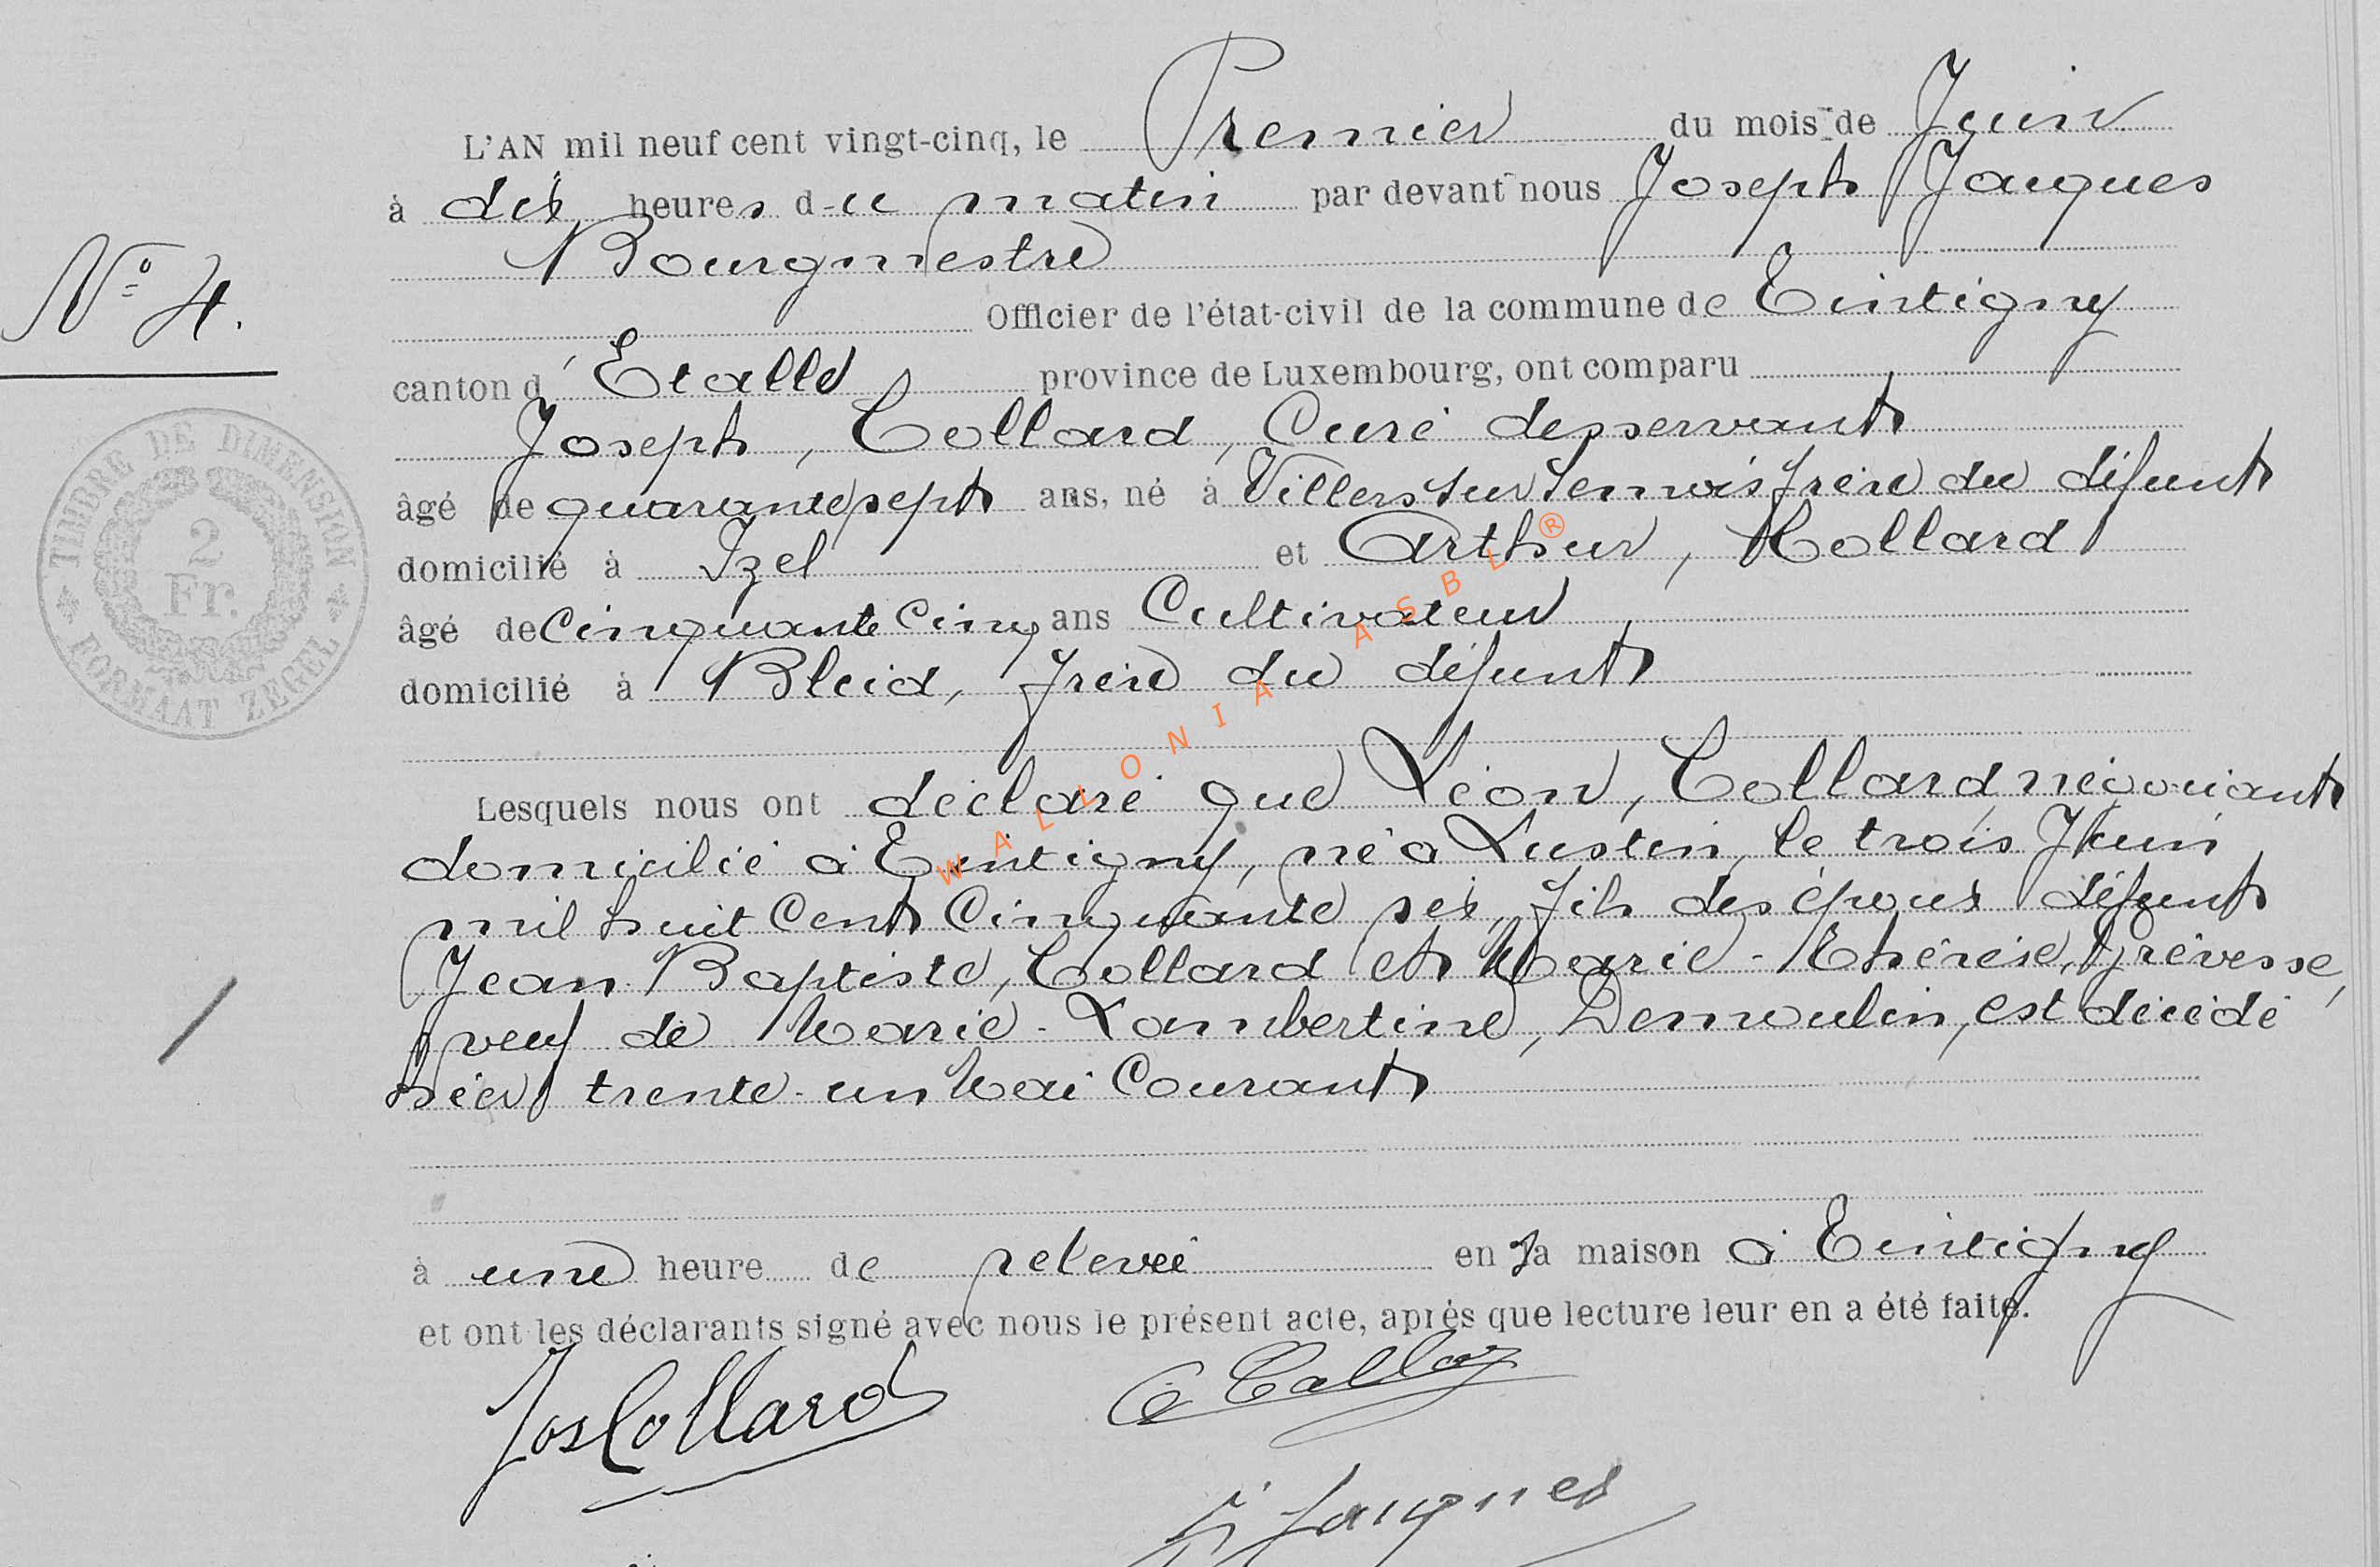 L'AN mil neuf cent vingt-cinq, le Premier du mois de Juin
à dix heures du matin par devant nous Joseph Jacques
Bourgmestre
N° 4.
Officier de l'état-civil de la commune de Tintigny
canton d'Etalle province de Luxembourg, ont comparu
Joseph, Collard, Curé desservant
âgé de quarante sept ans, né à Villers sur Semois frère du défunt
domicilié à Izel et Arthur, Collard
âgé de Cinquante Cinq ans Cultivateur
domicilié à Bleid, frère du défunt
Lesquels nous ont déclaré que Léon, Collard, négociant
domicilié à Tintigny, né à Lustin, le trois Juin
mil huit Cent Cinquante six, fils des époux défunt
Jean Baptiste, Collard et Marie-Thérèse, Grévesse,
veuf de Marie-Lambertine, Demoulin, est décédé
hier trente-un Mai Courant
à une heure de relevée en sa maison à Tintigny
et ont les déclarants signé avec nous le présent acte, après que lecture leur en a été faite.
Jos Collard
J Jacques
TIMBRE DE DIMENSION
2
Fr.
FORMAAT ZEGEL
WALLONIA ASBL ®